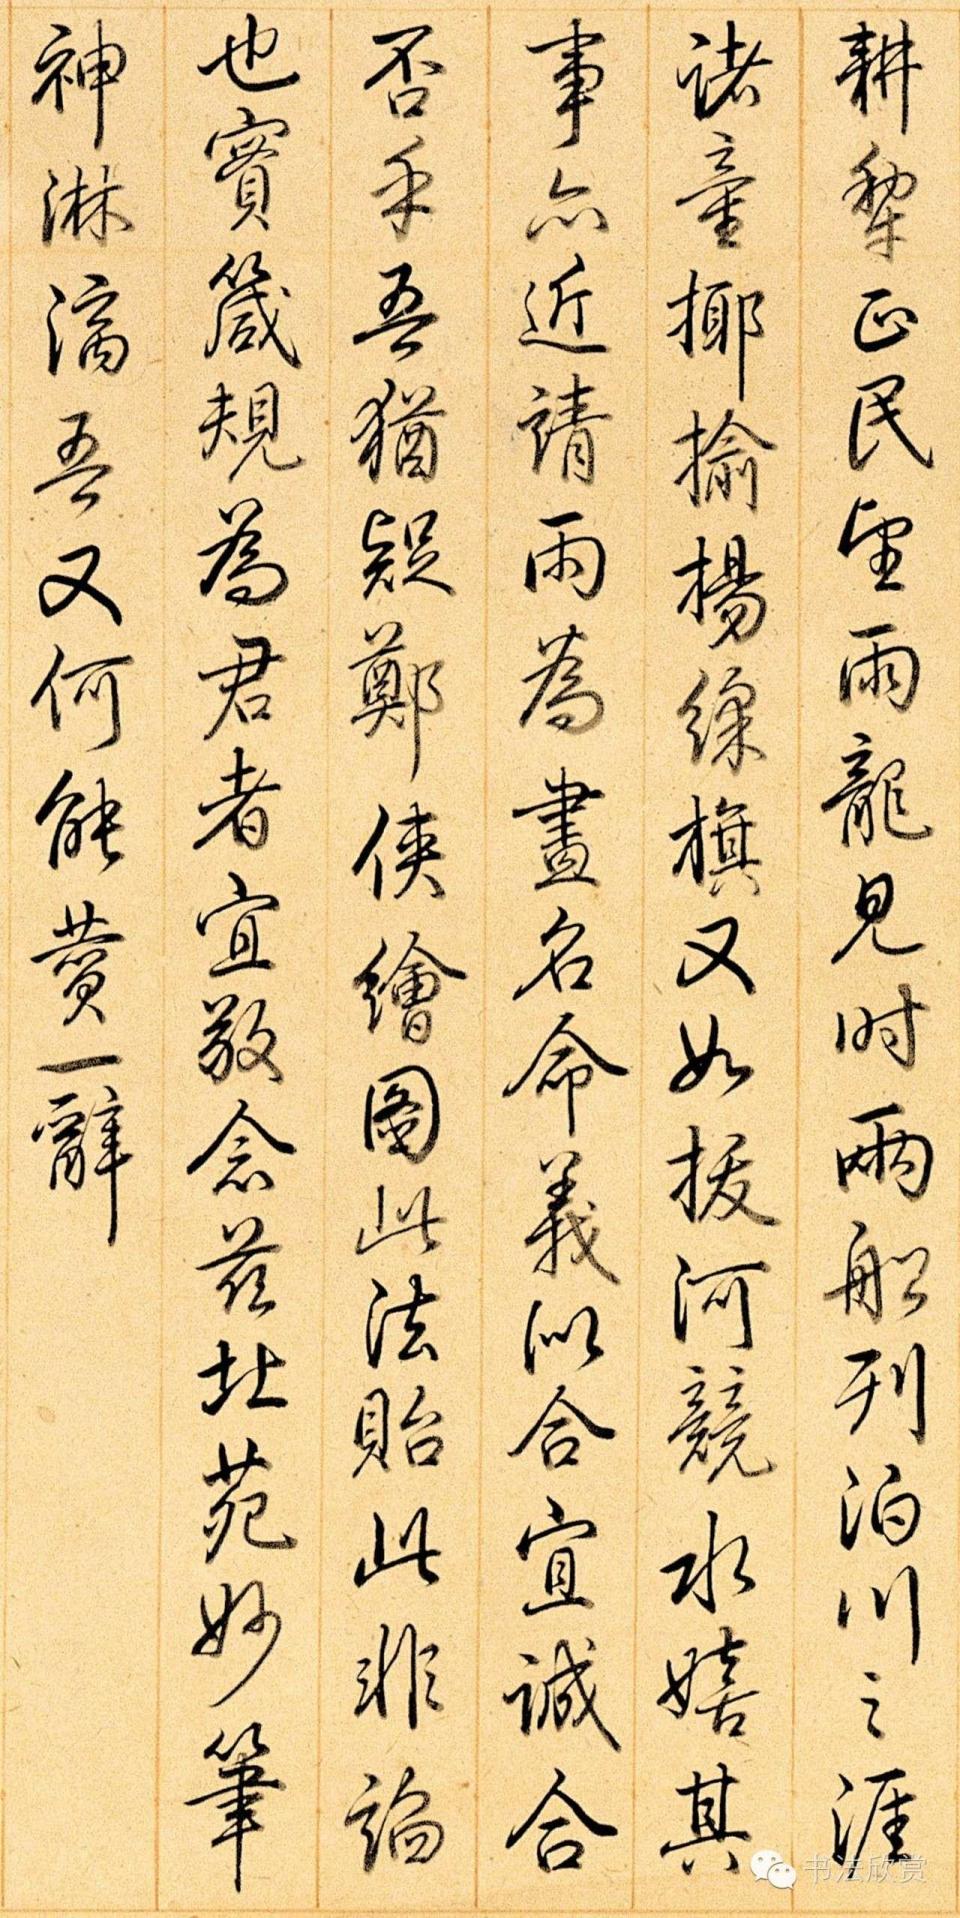 耕犁正民望雨龍見时兩船列泊川之涯
諸童揶揄楊綵旗又如拔河競水嬉其
事亦近請雨為畫名命義似合宜誠合
否乎吾猶疑鄭俠繪圖此法貽此非論
也實箴規為君者宜敬念茲北苑妙筆
神淋漓吾又何能贊一辭
书法欣赏